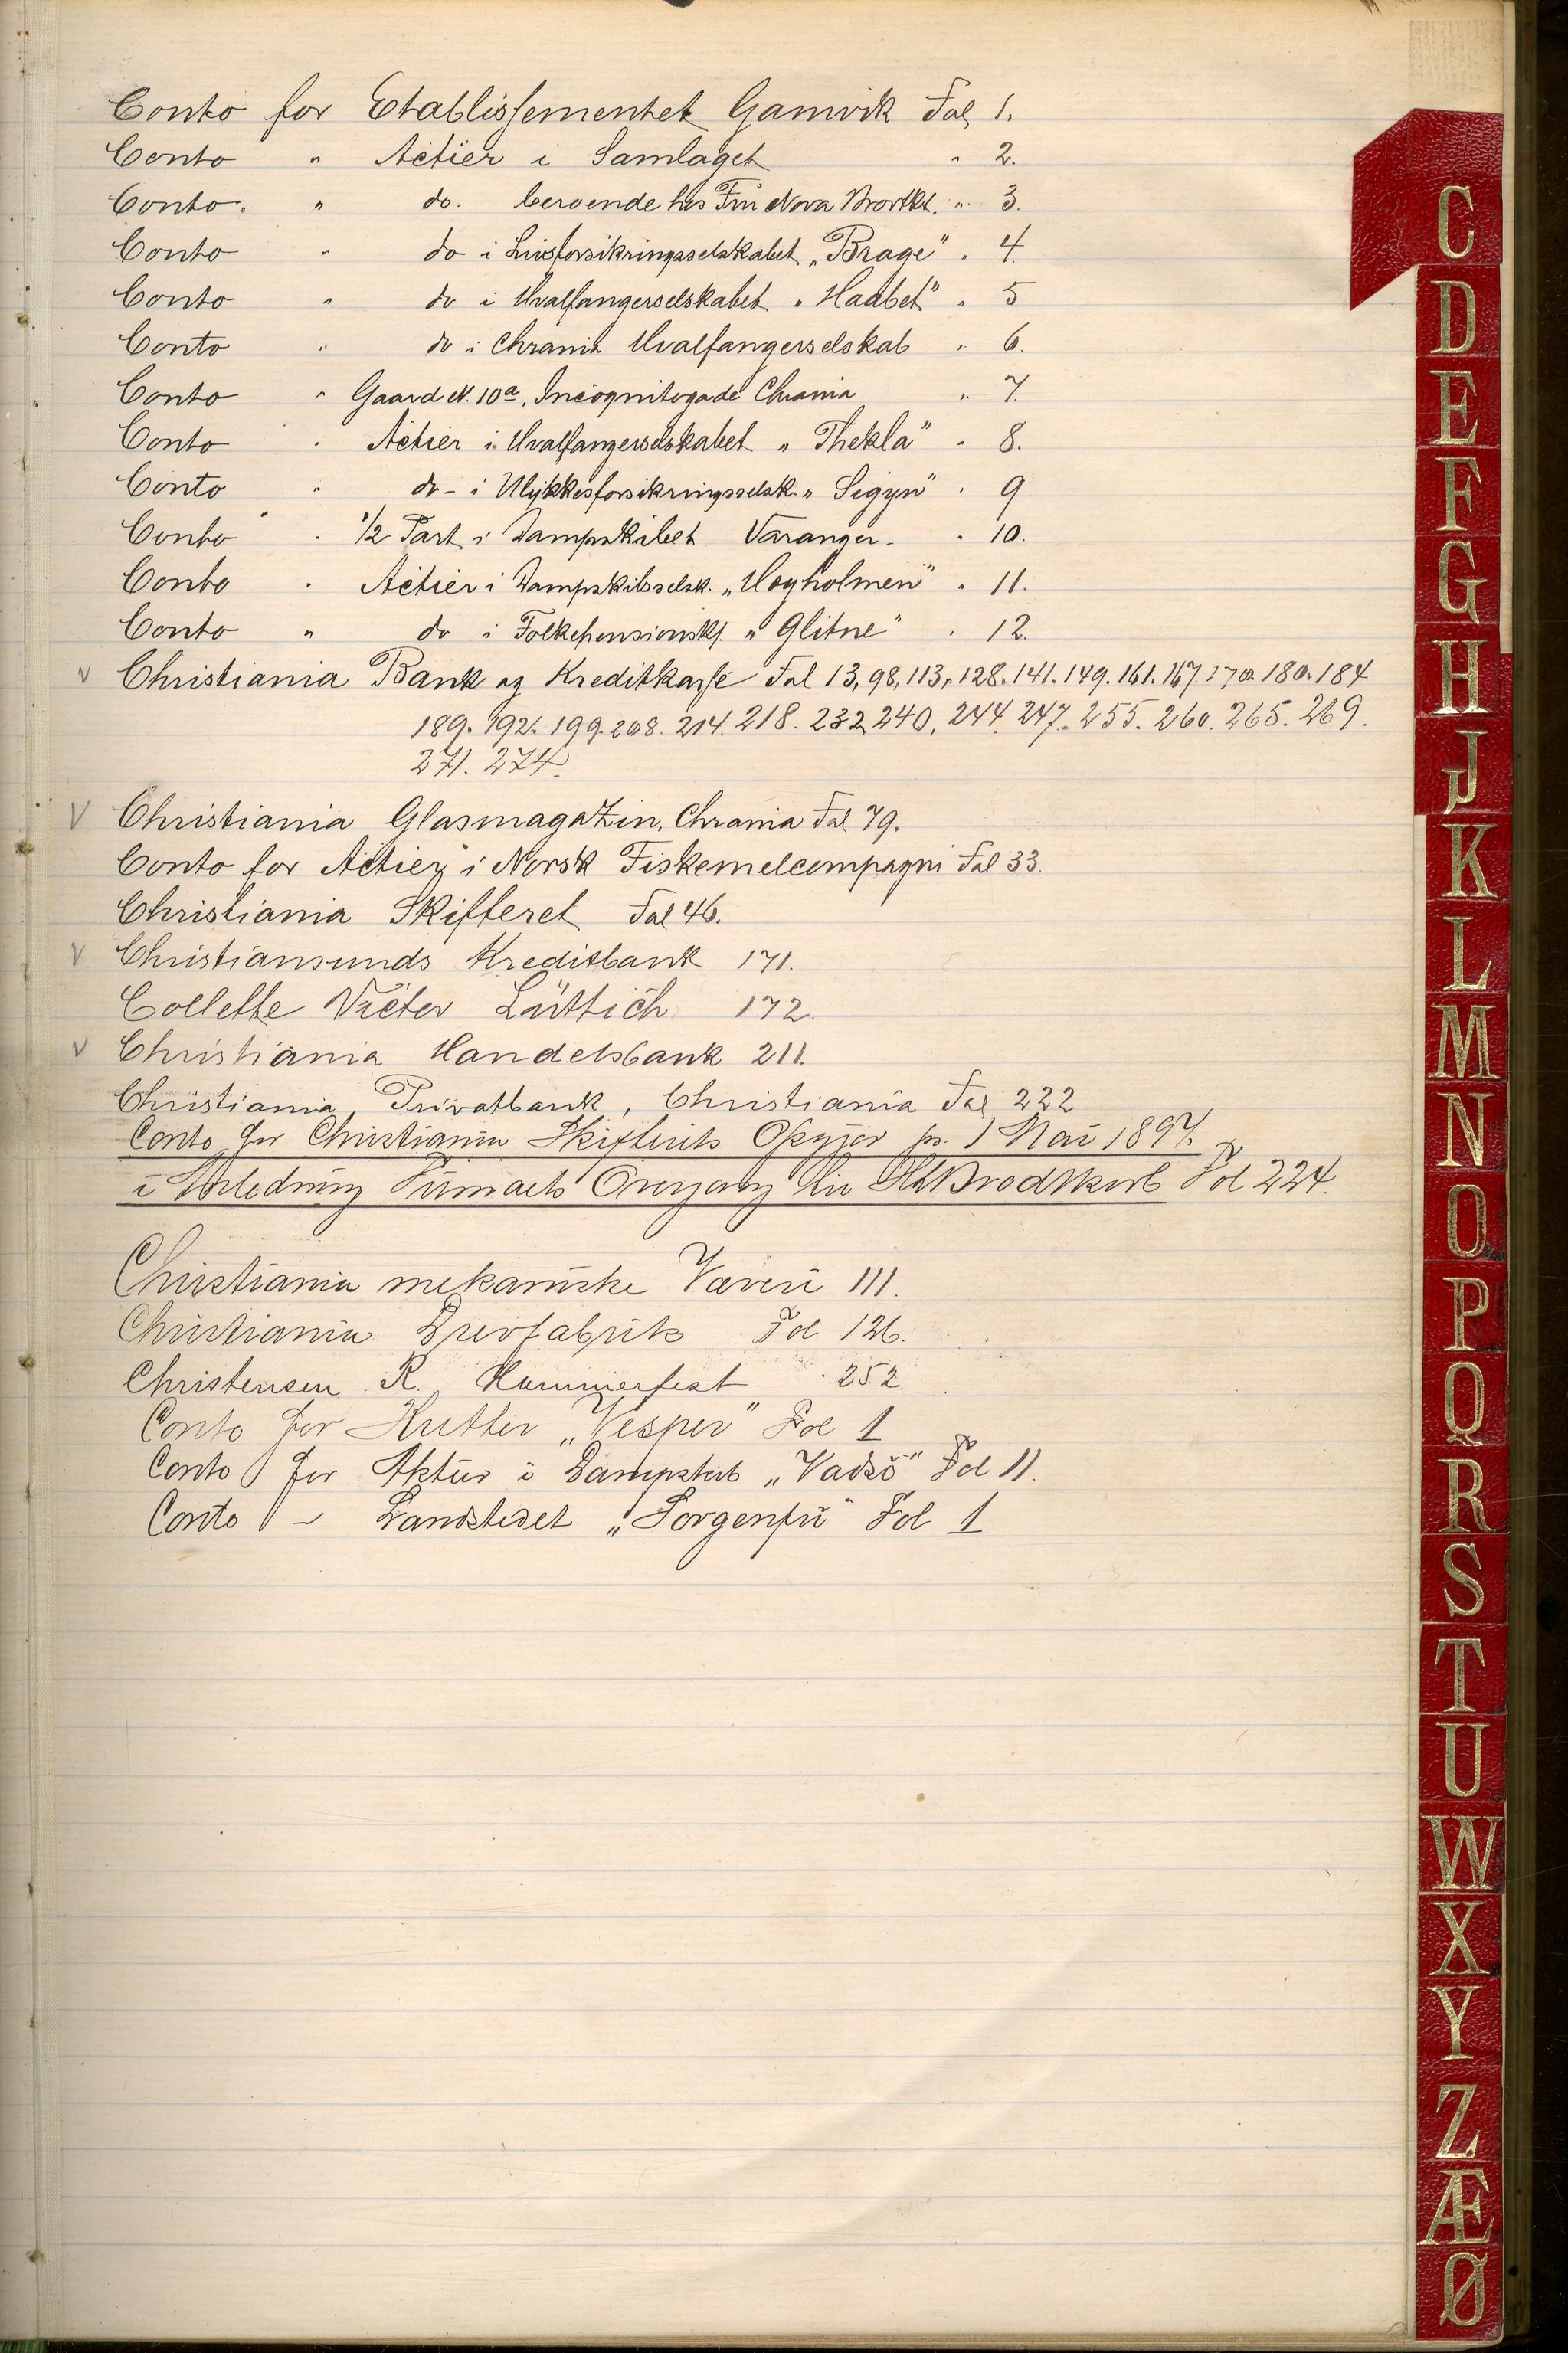 Conto for Etablissementet Gamvik Fol 1.
Conto " Actier i Samlaget " 2.
Conto. " do. beroende hos Nora " 3.
Conto " do i Livsforsikringsselskabet „Brage" " 4.
Conto " do i Hvalfangerselskabet „Haabet" " 5
Conto " do i Chrania Hvalfangerselskab " 6.
Conto " Gaard N. 10a, Incognitogade Chrania " 7.
Conto " Actier i Hvalfangerselskabet „Thekla" " 8.
Conto " do - i Ulykkesforsikringsselsk. „Sigyn" " 9
Conto " 1/2 Part i Dampskibet Varanger - " 10.
Conto " Actier i Dampskibsselsk. „Høyholmen" " 11.
Conto " do i „Glitne" " 12.
v Christiania Bank og Kreditkasse Fol 13, 98, 113, 128. 141. 149. 161. 167. 170. 180. 184
189. 192. 199. 208. 214. 218. 232, 240, 244. 247. 255. 260. 265. 269.
271. 274.
V Christiania Glasmagazin, Chrania Fol 79.
Conto for Actier i Norsk Fiskemelcompagni Fol 33.
Christiania Skifteret Fol 46.
v Christiansunds Kreditbank 171.
Collette Victor Lüttich 172.
v Christiania Handelsbank 211.
Christiania Privatbank, Christiania Fol 222
Conto for Christiania Skifterets Opgjør pr. 1 Mai 1897.
i Anledning Firmaets Overgang til Brodtkorb Fol 224.
Christiania mekaniske Væveri 111.
Christiania Fol 126.
Christensen R. Hammerfest 252.
Conto for Kutter „Vesper" Fol 1
Conto for Aktier i Dampskib „Vadsö" Fol 11.
Conto - Landstedet „Sorgenfri" Fol 1
C
D
E
F
G
H
J
K
L
M
N
O
P
Q
R
S
T
U
W
X
Y
Z
Æ
Ø